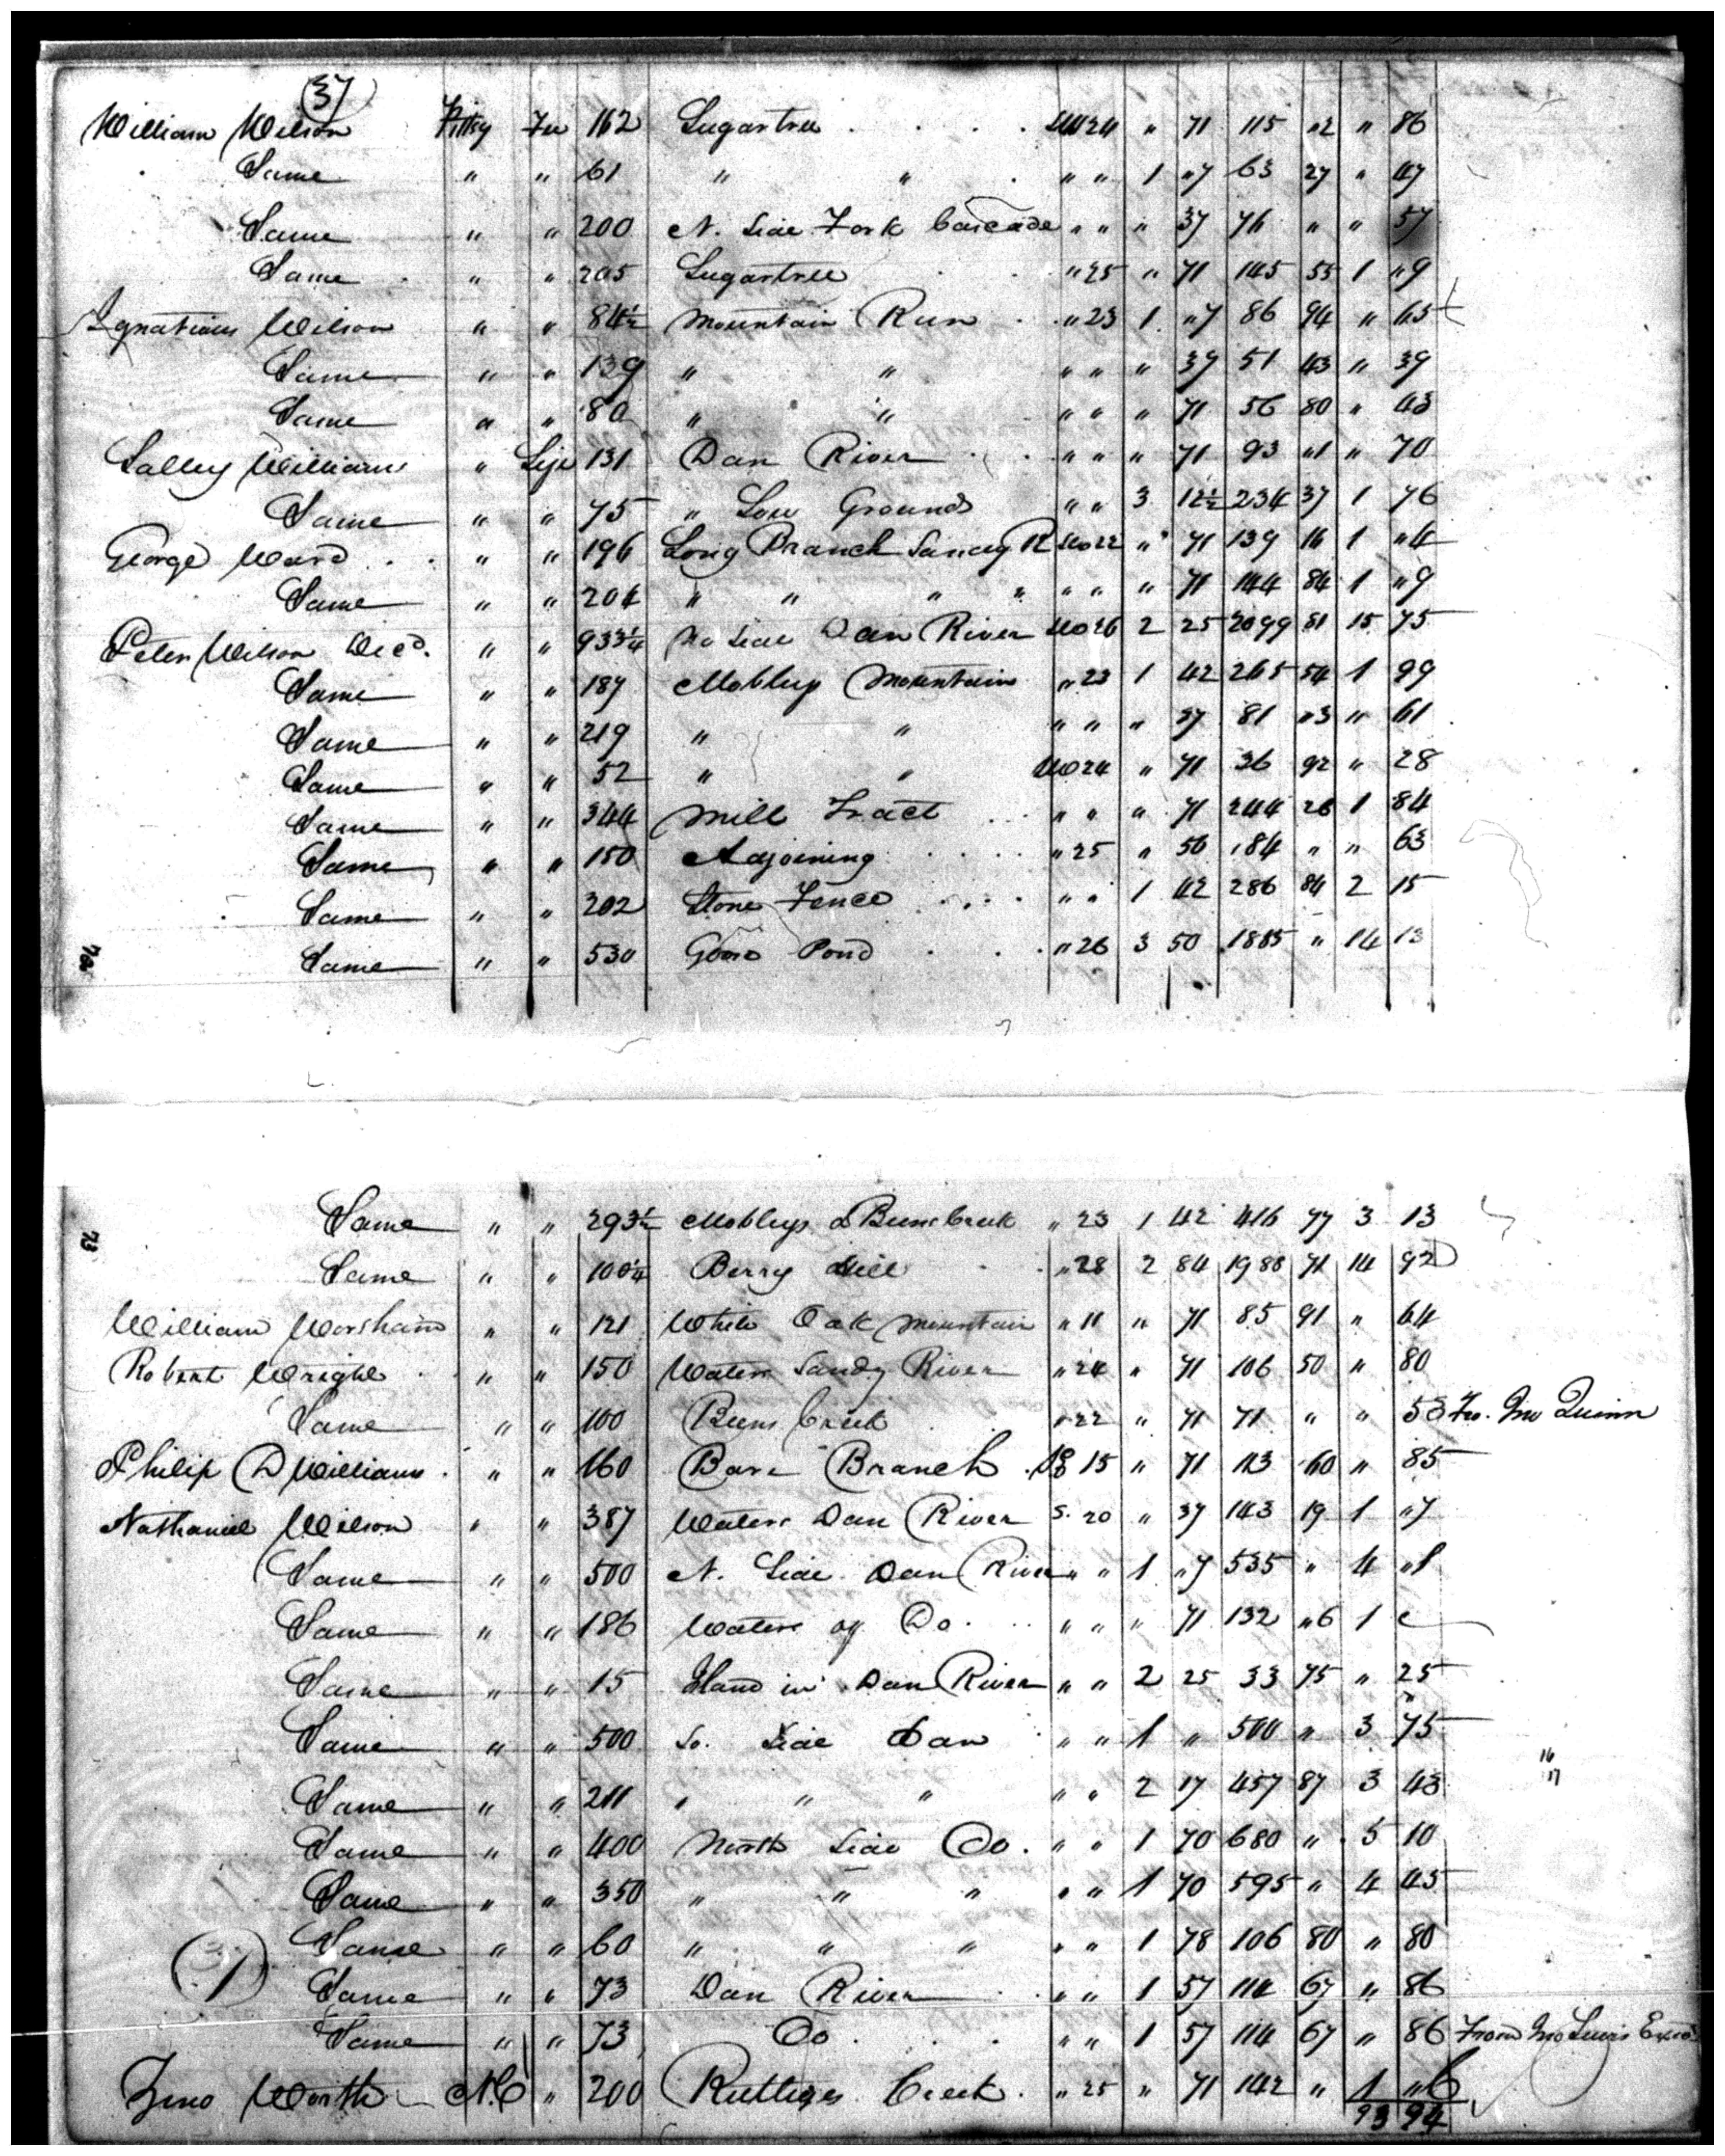 (37)
William Wilson Pittsy Fee 162 Sugartree . . . . SW 24 " 71 115 "2 " 86
Same " " 61 " " . " " 1 "7 63 27 " 47
Same " " 200 N. Side Fork Cascade " " " 37 76 " " 57
Same " " 205 Sugartree . . " 25 " 71 145 55 1 "9
Ignatious Wilson " " 84½ Mountain Run . . " 23 1 "7 86 94 " 65
Same " " 139 " " " " " 37 51 43 " 39
Same " " 80 " " " " " 71 56 80 " 43
Salley Williams " Life 131 Dan River . . " " " 71 93 "1 " 70
Same " " 75 " Low Grounds " " 3 12½ 234 37 1 76
George Ward . . " " 196 Long Branch Sandy R SW 22 " 71 139 16 1 "4
Same " " 204 " " " " " " " 71 144 84 1 "9
Peter Wilson Decd. " " 933¼ No Side Dan River SW 26 2 25 2099 81 15 75
Same " " 187 Mobleys Mountain " 23 1 42 265 54 1 99
Same " " 219 " " " " " 37 81 "3 " 61
Same " " 52 " " SW 24 " 71 36 92 " 28
Same " " 344 Mill Tract . . . " " " 71 244 26 1 84
Same " " 150 Adjoining . . . . " 25 " 56 84 " " 63
Same " " 202 Stone Fence . . . . " " 1 42 286 84 2 15
72 Same " " 530 Goose Pond . . . " 26 3 50 1885 " 14 13
73 Same " " 293½ Mobleys & Beens Creek " 23 1 42 416 77 3 13
Same " " 100¼ Berry Hill . . " 28 2 84 1988 71 14 92
William Worsham " " 121 White Oak Mountain " 11 " 71 85 91 " 64
Robert Wright . " " 150 Waters Sandy River " 24 " 71 106 50 " 80
Same " " 100 Beens Creek " 22 " 71 71 " " 53 Fro. Jno Quinn
Philip D Williams . " " 160 Bare Branch . 15 " 71 113 60 " 85
Nathaniel Wilson " " 387 Waters Dan River S. 20 " 37 143 19 1 "7
Same " " 500 N. Side Dan River " " 1 "7 535 " 4 "1
Same " " 186 Waters of Do. . . " " " 71 132 "6 1
Same " " 15 Island in Dan River " " 2 25 33 75 " 25
Same " " 500 So. Side Dan . " " 1 " 500 " 3 75
16
17
Same " " 211 " " " " " 2 17 457 87 3 43
Same " " 400 North Side Do. " " 1 70 680 " 5 10
Same " " 350 " " " " " 1 70 595 " 4 45
Same " " 60 " " " " " 1 78 106 80 " 80
(1) Same " " 73 Dan River . . " " 1 57 114 67 " 86
Same " " 73 Do . . . " " 1 57 114 67 " 86 From Jno Lewis
Worth N.C " 200 Rutleges Creek . " 25 " 71 142 " 1 "6
93 94